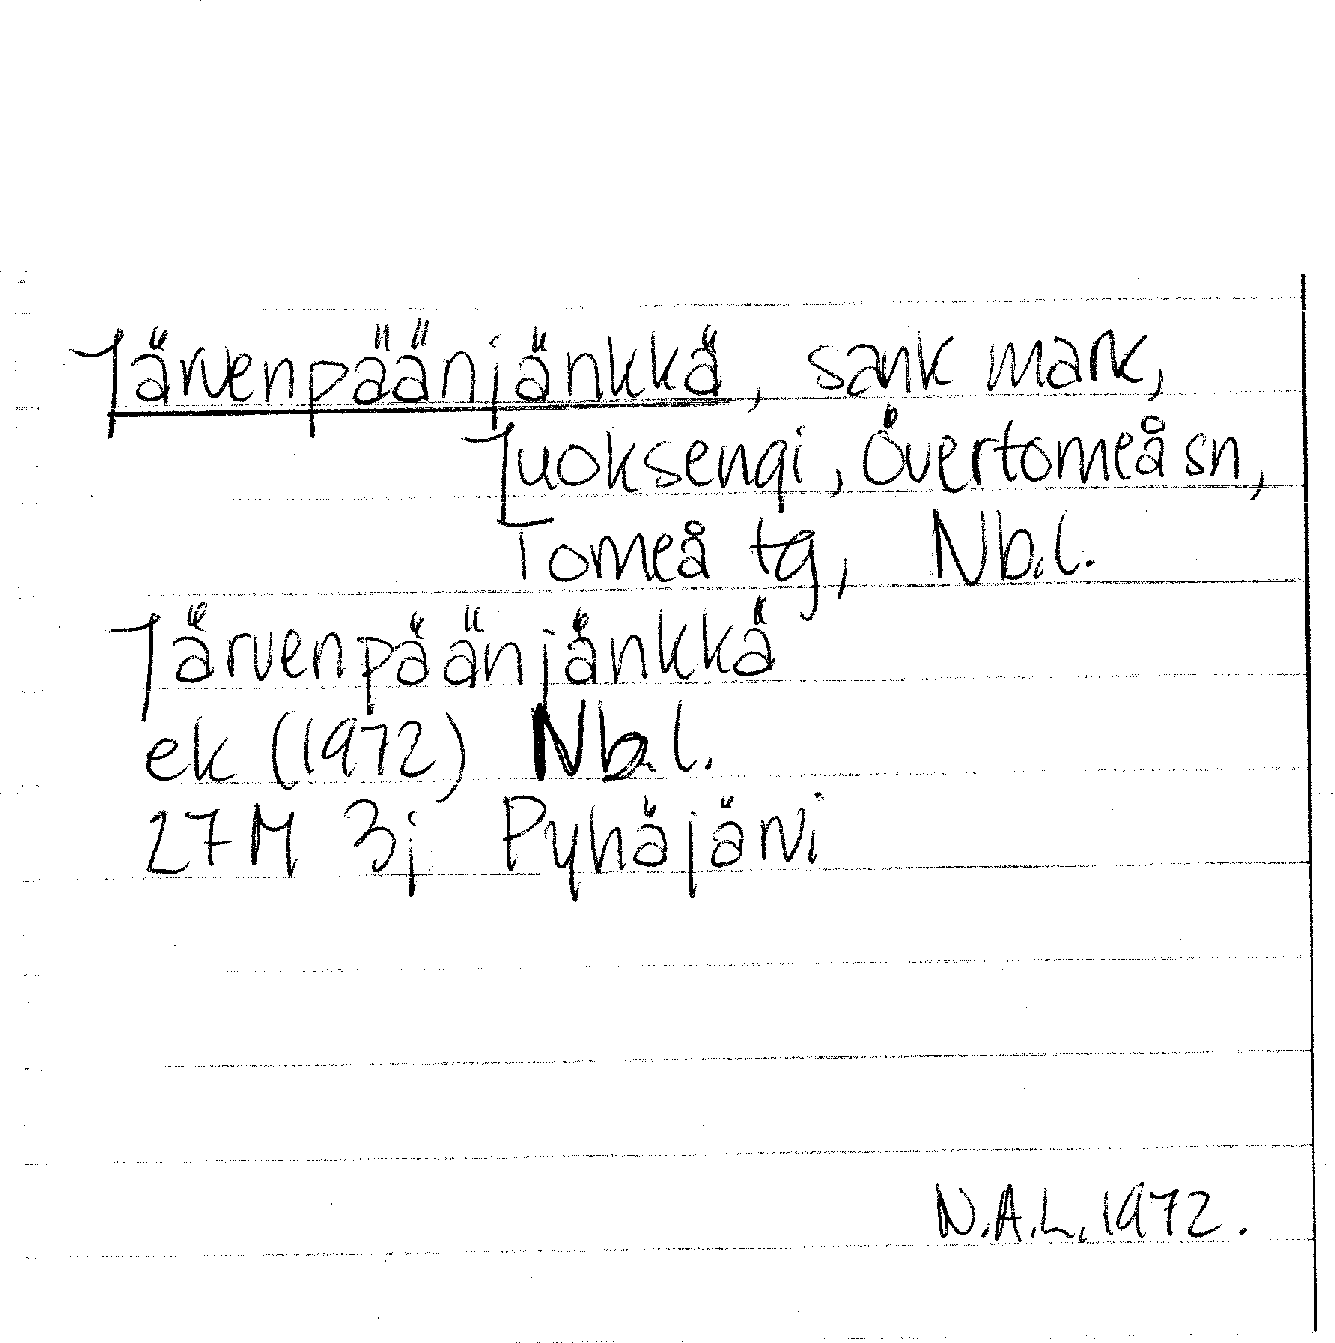 Järvenpäänjänkkä, sank mark,
Juoksengi, Övertorneå sn,
Torneå tg, Nb.l.
Järvenpäänjänkkä
ek (1972) Nb.l.
27M 3j Pyhäjärvi
N.A.L. 1972.